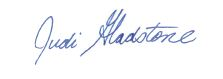 Judi Gladstone